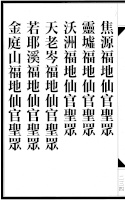 焦源福地仙官聖眾
靈墟福地仙官聖眾
沃洲福地仙官聖眾
天老岑福地仙官聖眾
若耶溪福地仙官聖眾
金庭山福地仙官聖眾